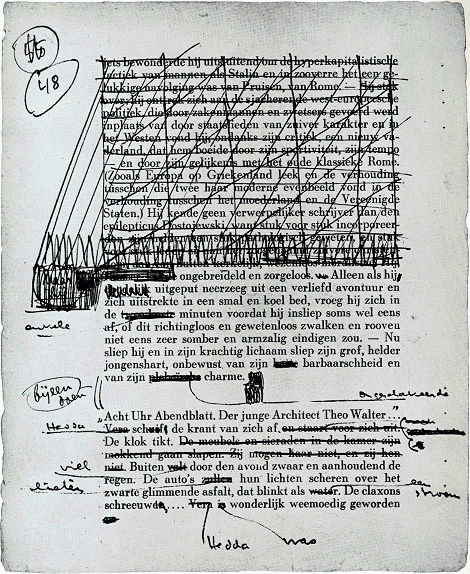 48
iets bewonderde hij uitsluitend om de hyperkapitalistische
tactiek van mannen als Stalin en in zooverre het een ge-
lukkige navolging was van Pruisen, van Rome. — Hij stak
over; hij ontrok zich aan de sjacherende west-europeesche
politiek, die door zakenmannen en zwetsers gevoerd werd
inplaats van door staatslieden van zuiver karakter en in
het Westen vond hij, ondanks zijn critiek een nieuw va-
derland, dat hem boeide door zijn sportiviteit, zijn tempo
— en door zijn gelijkenis met het oude klassieke Rome.
(Zooals Europa op Griekenland leek en de verhouding
tusschen die twee haar moderne evenbeeld vond in de
verhouding tusschen het moederland en de Vereenigde
Staten.) Hij kende geen verwerpelijker schrijver dan den
epilepticus Dostojewski, want stuk voor stuk incorporeer-
ongebreideld en zorgeloos. Alleen als hij,
uitgeput neerzeeg uit een verliefd avontuur en
zich uitstrekte in een smal en koel bed, vroeg hij zich in
de minuten voordat hij insliep soms wel eens
af, of dit richtingloos en gewetenloos zwalken en rooven
niet eens zeer somber en armzalig eindigen zou. — Nu
sliep hij en in zijn krachtig lichaam sliep zijn grof, helder
jongenshart, onbewust van zijn barbaarschheid en
van zijn charme.
bijeen
„Acht Uhr Abendblatt. Der junge Architect Theo Walter…”
Hedda Vera schuift de krant van zich af en staart voor zich uit.
De klok tikt. De meubels en sieraden in de kamer zijn
mokkend gaan slapen. Zij mogen haar niet, en zij hon
niet. Buiten valt door den avond zwaar en aanhoudend de
viel
regen. De auto's zullen hun lichten scheren over het
zwarte glimmende asfalt, dat blinkt als water. De claxons
schreeuwden.... Vera is wonderlijk weemoedig geworden
Hedda was